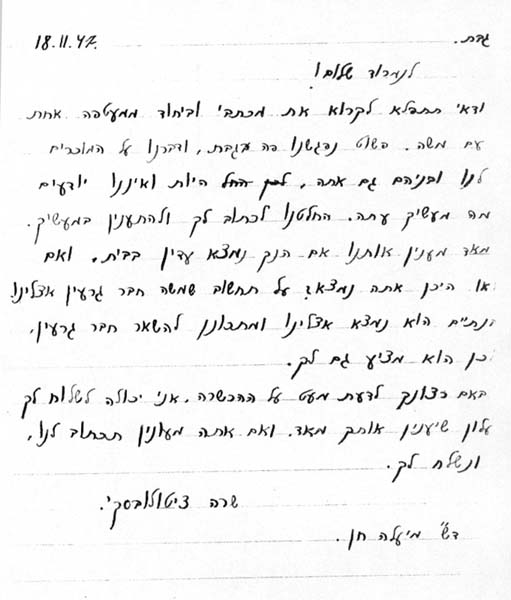 גבת. 18.11.47.
לנמרוד שלום!
ודאי תתפלא לקרוא את מכתבי וביחוד ממעטפה אחת
עם משה. פשוט נפגשנו פה בגבת, ודברנו על המוכרים
לנו וביניהם גם אתה, היות ואיננו יודעים
מה מעשיך עתה. החלטנו לכתוב לך ולהתענין במעשיך.
מאד מענין אותנו אם הנך נמצא עדין בבית, ואם
או היכן אתה נמצא? על תחשוב שמשה חבר גרעין אצלינו
הוא נמצא אצלינו ומתכונן להשאר חבר גרעין,
וכן הוא מציע גם לך.
באם רצונך לדעת מעט על ההכשרה, אני יכולה לשלוח לך
עלון שיענין אותך מאד. ואם אתה מעונין תכתוב לנו,
ונשלח לך.
שרה ציטולובסקי.
ד"ש מיעלה חן.